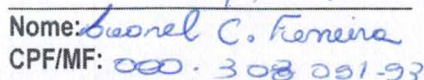 Nome: Leonel C. Ferreira
CPF/MF: 000.308 091-93